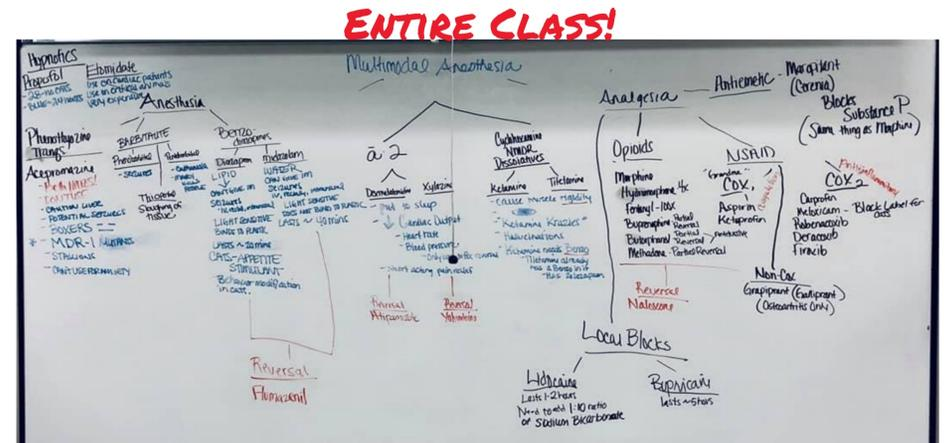 ENTIRE CLASS!
Multimodal Anesthesia
Hypnotics
Propofol
Etomidate
Use on cardiac patients
Use on critical animals
Very expensive
Anesthesia
Phenothyazine
Acepromazine
- POTENTIAL SEIZURES
- BOXERS
* - MDR-1 MUTANTS
- STALLIONS
BARBITUATE
Phenobarbital
- SEIZURES
Pentobarbital
- EUTHANASIA
Thiopental
Sloughing of
tissue
Benzo
diazapines
Diazapam
LIPID
SEIZURES
LIGHT SENSITIVE
BINDS TO PLASTIC
CATS-APPETITE
STIMULANT
Behavior modification
in cats.
midazolam
WATER
CAN GIVE IM
SEIZURES
LIGHT SENSITIVE
DOES NOT BIND TO PLASTIC
Reversal
Flumazenil
a-2
Dexmedetomidine
Xylazine
Put to sleep
↓ Cardiac Output
Heart rate
Blood pressure
Reversal
Atipamezole
Reversal
Yohimbine
Cyclohexamine
NMDR
Dissolatives
Ketamine
Tiletamine
- cause muscle rigidity
- Ketamine Krazies
- Hallucinations
- Ketamine needs Benzo
Tiletamine already
has a Benzo in it
Analgesia
Antiemetic
- Maropitent
(Cerenia)
Blocks
Substance P
(Same thing as Morphine)
Opioids
Morphine
Hydromorphone 4x
Fentanyl -100x
Buprenorphine Partial Reversal
Butorphanol Partial Reversal
Methadone - Partial Reversal
Reversal
Naloxone
NSAID
"Grandma"
COX1
Aspirin
Ketoprofen
COX2
Antiinflammatory
Carprofen
Meloxicam - Black Label for cats
Robenacoxib
Deracoxib
Firocib
Non-Cox
Grapiprant (Galliprant)
(Osteoartritis Only)
Local Blocks
Lidocaine
Lasts 1-2 hours
Need to add 1:10 ratio
of Sodium Bicarbonate
Bupivicaine
Lasts ~5 hours